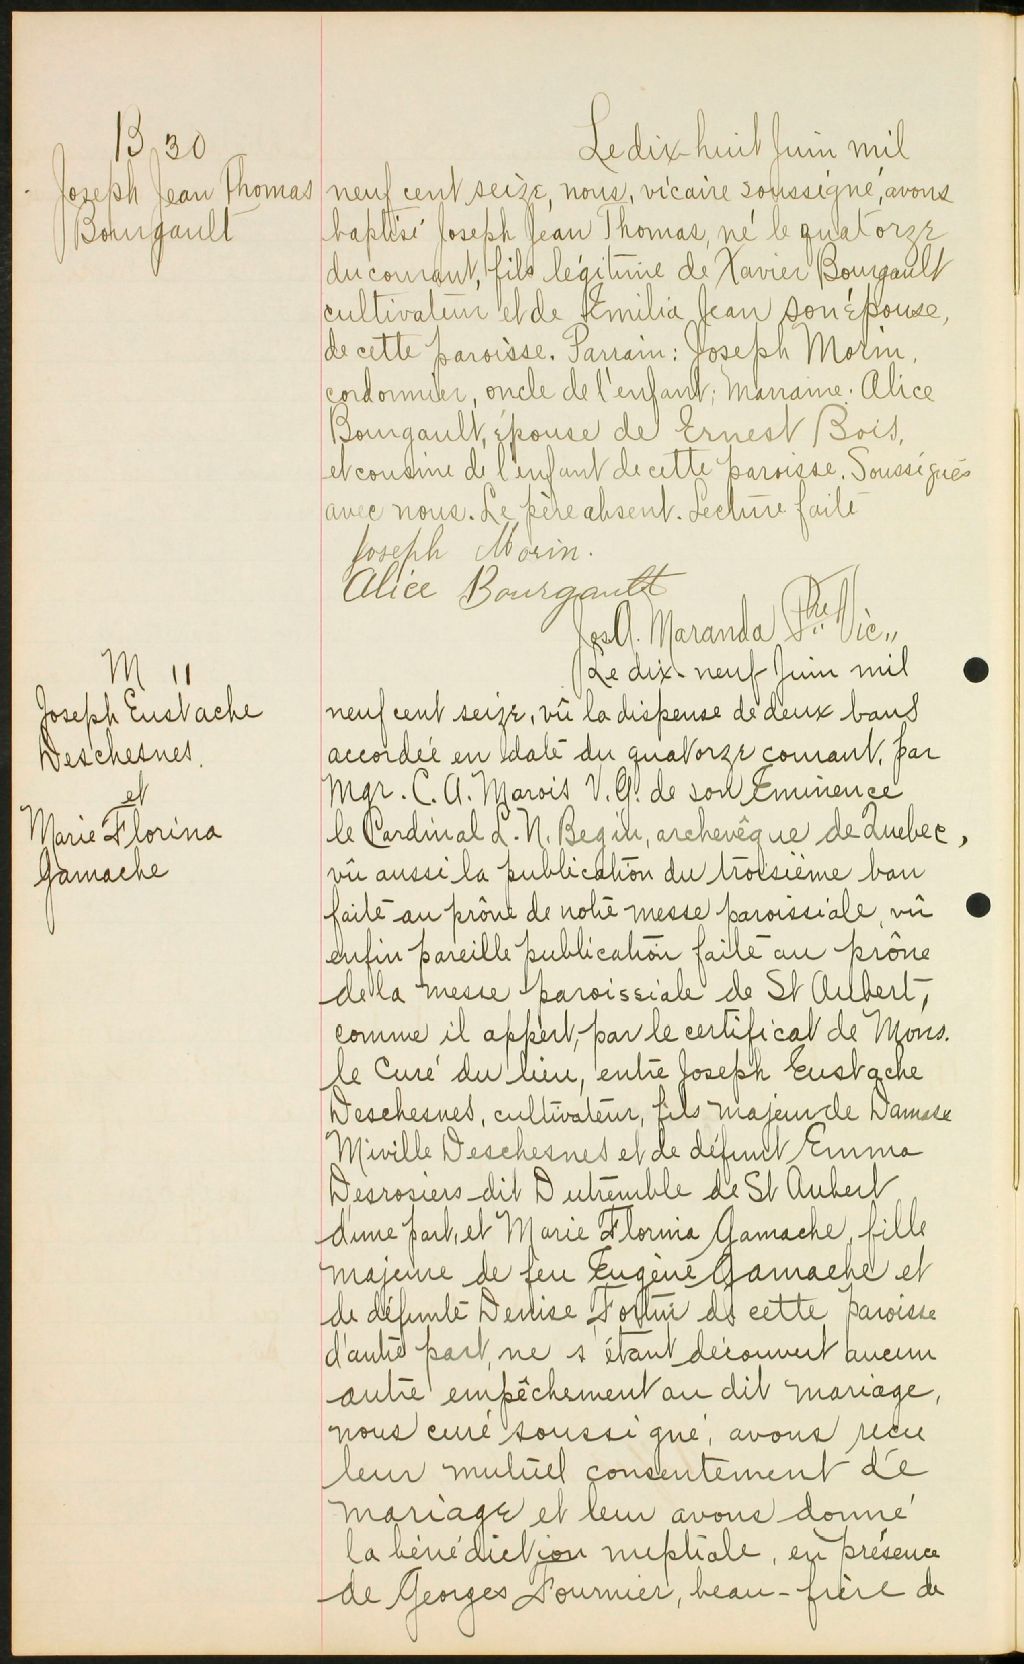 B 30
Joseph Jean Thomas
Bourgault
Le dix-huit Juin mil
neuf cent seize, nous, vicaire soussigné, avons
baptisé Joseph Jean Thomas, né le quatorze
du courant, fils légitime de Xavier Bourgault
cultivateur et de Emilia Jean son épouse,
de cette paroisse. Parrain: Joseph Morin,
cordonnier, oncle de l'enfant; marraine: Alice
Bourgault, épouse de Ernest Bois,
et cousine de l'enfant de cette paroisse. Soussignés
avec nous. Le père absent. Lecture faite
Joseph Morin.
Alice Bourgault
Jos A. Maranda Ptre Vic,,
M 11
Joseph Eustache
Deschesnes.
et
Marie Florina
Gamache
Le dix-neuf Juin mil
neuf cent seize, vû la dispense de deux bans
accordée en date du quatorze courant, par
Mgr. C. A. Marois V. G. de son Eminence
le Cardinal L. N. Begin, archevêque de Quebec,
vû aussi la publication du troisième ban
faite au prône de notre messe paroissiale, vû
enfin pareille publication faite au prône
de la messe paroissiale de St Aubert,
comme il appert, par le certificat de Mons.
le Curé du lieu, entre Joseph Eustache
Deschesnes, cultivateur, fils majeur de Damase
Miville Deschesnes et de défunt Emma
Desrosiers dit Dutremble de St Aubert
d'une part, et Marie Florina Gamache, fille
majeure de feu Eugène Gamache et
de défunte Denise Fortin de cette paroisse
d'autre part, ne s'étant découvert aucun
autre empêchement au dit mariage,
nous curé soussigné, avons reçu
leur mutuel consentement de
mariage et leur avons donné
la bénédiction nuptiale, en présence
de Georges Fournier, beau-frère de